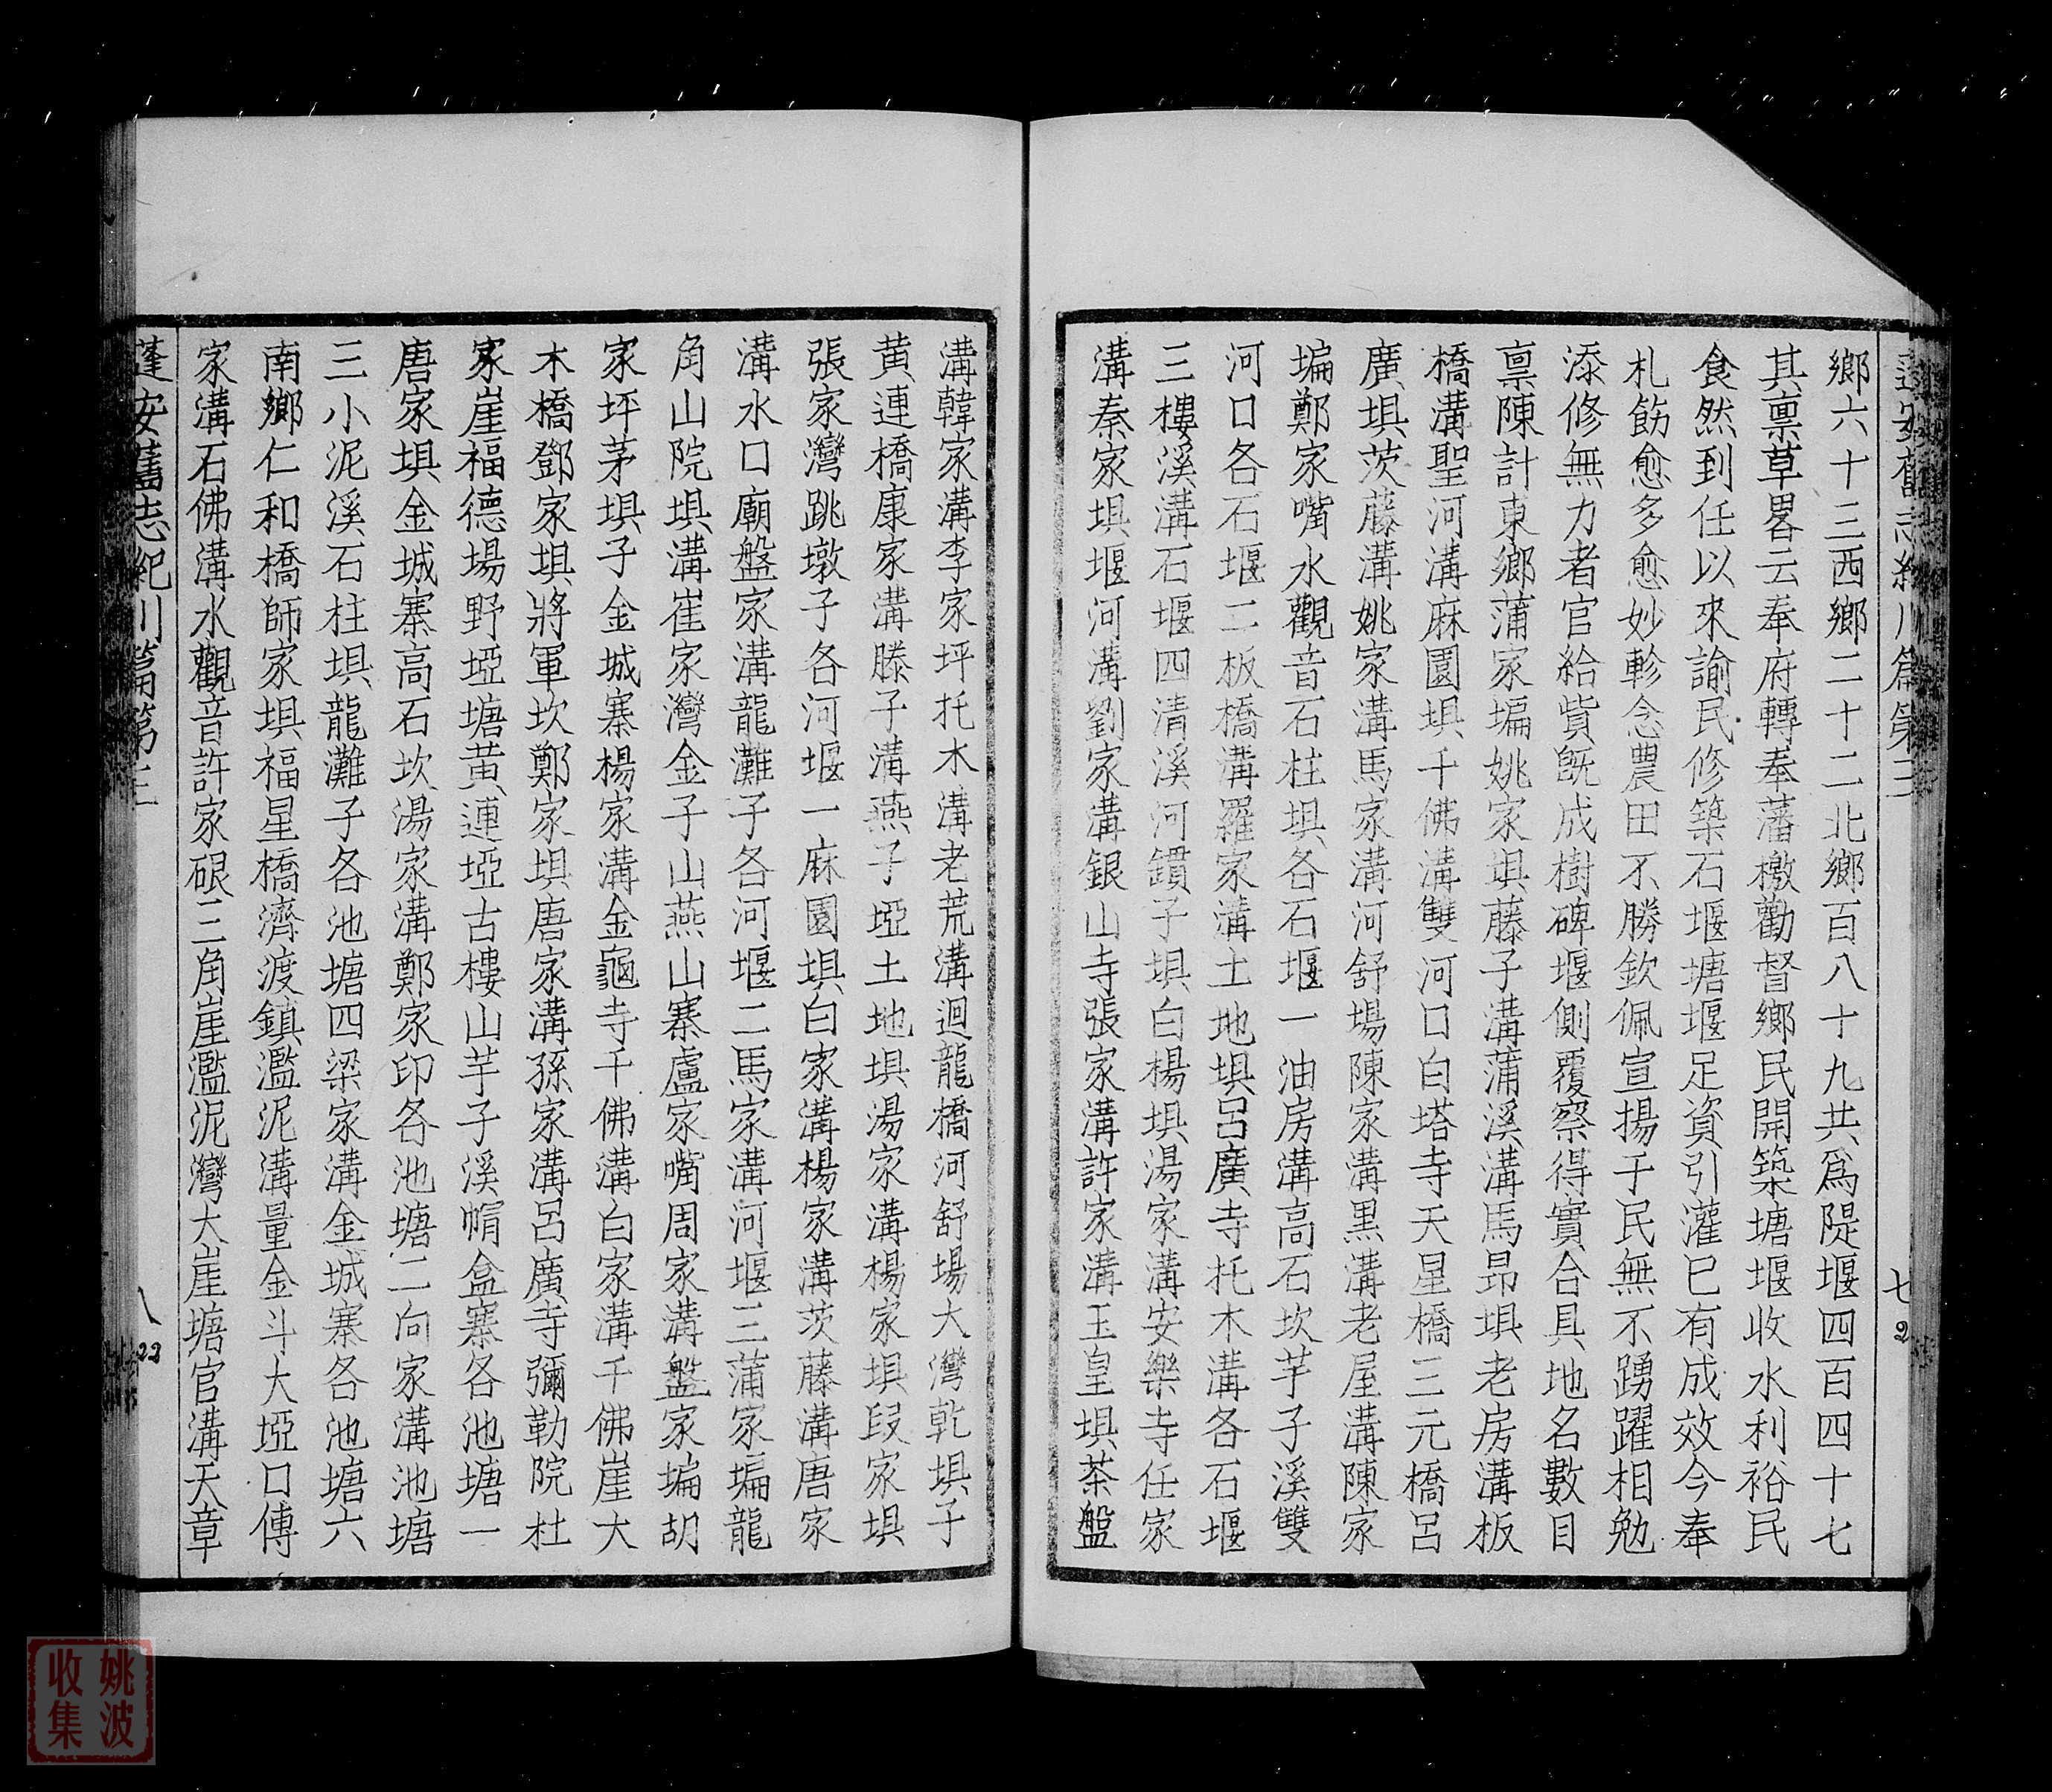 蓬安舊志紀川篇第三
七
2
鄉六十三西鄉二十二北鄉百八十九共為隄堰四百四十七
其禀草畧云奉府轉奉藩檄勸督鄉民開築塘堰收水利裕民
食然到任以來諭民修築石堰塘堰足資引灌已有成效今奉
札飭愈多愈妙軫念農田不勝欽佩宣揚于民無不踴躍相勉
添修無力者官給貲旣成樹碑堰側覆察得實合具地名數目
禀陳計東鄉蒲家塥姚家垻藤子溝蒲溪溝馬昂垻老房溝板
橋溝聖河溝麻園垻千佛溝雙河口白塔寺天星橋三元橋呂
廣垻茨藤溝姚家溝馬家溝河舒場陳家溝黑溝老屋溝陳家
塥鄭家嘴水觀音石柱垻各石堰一油房溝高石坎芋子溪雙
河口各石堰二板橋溝羅家溝土地垻呂廣寺托木溝各石堰
三樓溪溝石堰四清溪河鐼子垻白楊垻湯家溝安樂寺任家
溝秦家垻堰河溝劉家溝銀山寺張家溝許家溝玉皇垻茶盤
溝韓家溝李家坪托木溝老荒溝迴龍橋河舒場大灣乾垻子
黄連橋康家溝滕子溝燕子埡土地垻湯家溝楊家垻段家垻
張家灣跳墩子各河堰一麻園垻白家溝楊家溝茨藤溝唐家
溝水口廟盤家溝龍灘子各河堰二馬家溝河堰三蒲家塥龍
角山院垻溝崔家灣金子山燕山寨盧家嘴周家溝盤家塥胡
家坪茅垻子金城寨楊家溝金龜寺千佛溝白家溝千佛崖大
木橋鄧家垻將軍坎鄭家垻唐家溝孫家溝呂廣寺彌勒院杜
家崖福德場野埡塘黄連埡古樓山芋子溪帽盒寨各池塘一
唐家垻金城寨高石坎湯家溝鄭家印各池塘二向家溝池塘
三小泥溪石柱垻龍灘子各池塘四梁家溝金城寨各池塘六
南鄉仁和橋師家垻福星橋濟渡鎮濫泥溝量金斗大埡口傅
家溝石佛溝水觀音許家硍三角崖濫泥灣大崖塘官溝天章
蓬安舊志紀川篇第三
八
22
姚波
收集